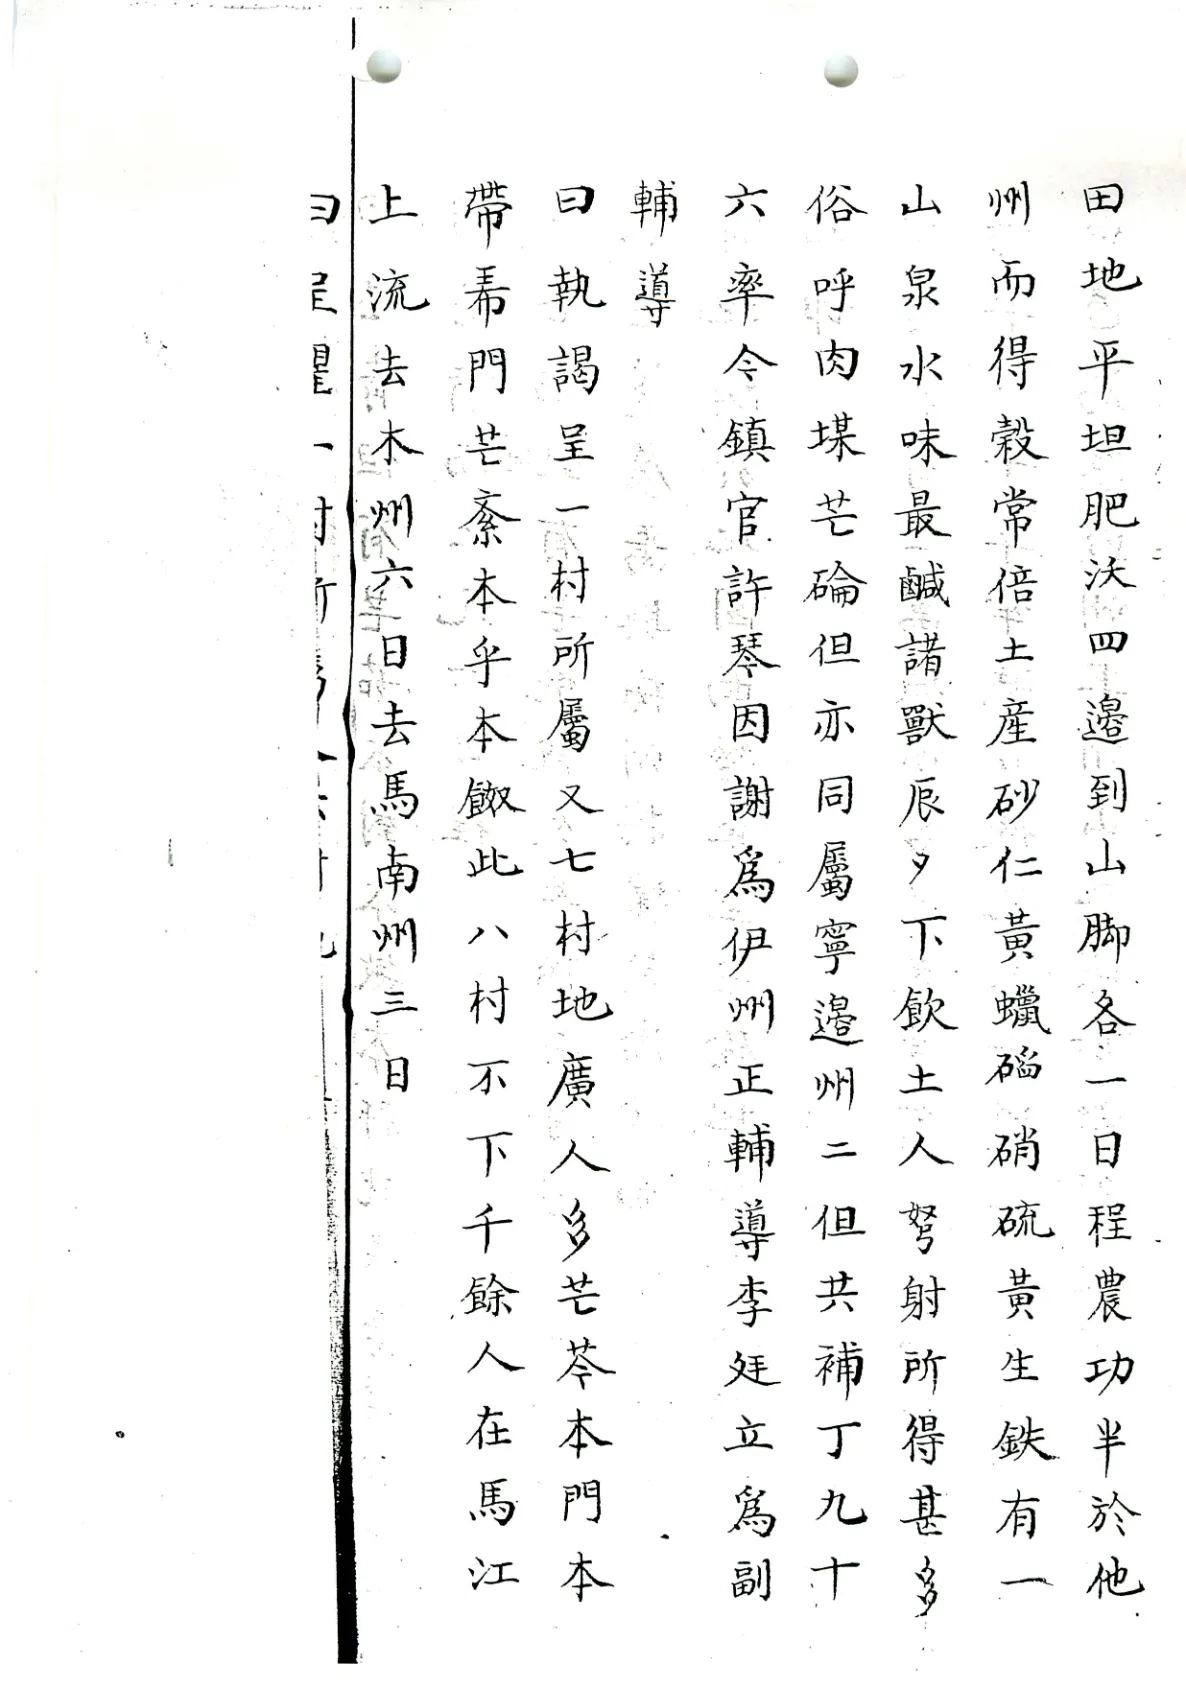 田地平坦肥沃四邉到山脚各一日程農功半於他
州而得穀常倍土産砂仁黃蠟硝硫黃生鉄有一
山泉水味最鹹諸獸辰夕下飲土人弩射所得甚多
俗呼肉堞芒碖但亦同屬寧邉州二但共補丁九十
六率令鎮官許琴因謝爲伊州正輔導李廷立爲副
輔導
曰執謁呈一村所屬又七村地廣人多芒芩本門本
帶帬門芒紊本乎本此八村不下千餘人在馬江
上流去木州六日去馬南州三日